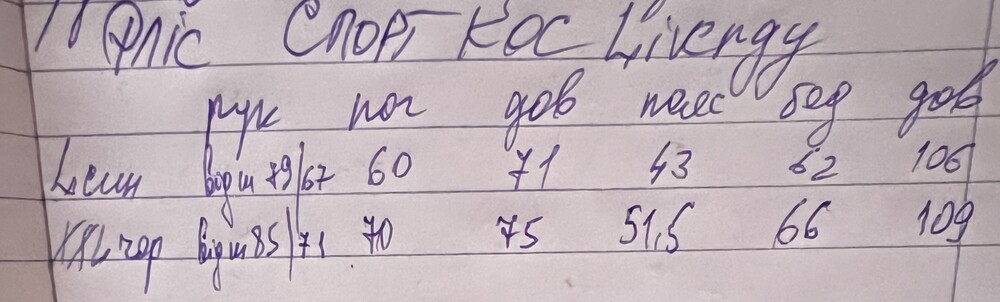 Фліс Спорт кос Livergy
рук пог дов пояс бед дов
L син від ш 79/67 60 71 43 62 106
XXL чор від ш 85/71 70 75 51,5 66 109